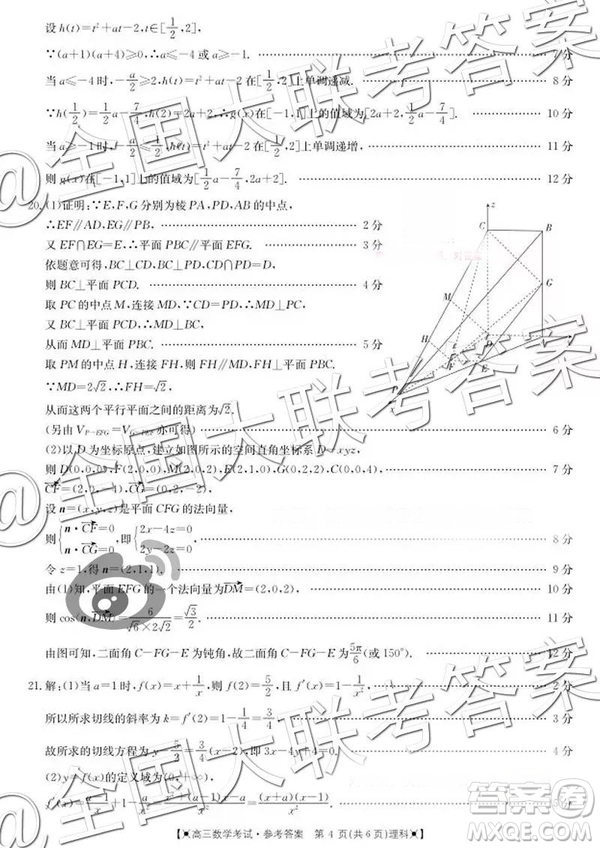 设h(t)=t²+at-2,t∈[1/2,2],
∵(a+1)(a+4)≥0,∴a≤-4或a≥-1. 7分
当a≤-4时,-a/2≥2,h(t)=t²+at-2在[1/2,2]上单调递减.
8分
∵h(1/2)=1/2a-7/4,h(2)=2a+2,∴g(x)在[-1,1]上的值域为[2a+2,1/2a-7/4]. 10分
当a≥-1时,-a/2≤1/2,h(t)=t²+at-2在[1/2,2]上单调递增, 11分
则g(x)在[-1,1]上的值域为[1/2a-7/4,2a+2]. 12分
20.(1)证明:∵E,F,G分别为棱PA,PD,AB的中点,
∴EF∥AD,EG∥PB, 2分
又EF∩EG=E,∴平面PBC∥平面EFG. 3分
依题意可得,BC⊥CD,BC⊥PD,
则BC⊥平面PCD. 4分
取PC的中点M,连接MD,则MD⊥PC,
又BC⊥MD,∴MD⊥平面PBC,
从而MD⊥平面EFG. 5分
取PM的中点H,连接FH,则FH∥MD,FH⊥平面PBC,
∵MD=2√2,∴FH=√2,
从而这两个平行平面之间的距离为√2.
(另由 亦可得) 6分
(2)以D为坐标原点,建立如图所示的空间直角坐标系D-xyz,
则D(0,0,0),F(2,0,0),M(2,0,2),E(2,1,0),G(0,2,2),C(0,0,4). 7分
CF=(2,0,-4),CG=(0,2,-2),
设n=(x,y,z)是平面CFG的法向量,
则{n·CF=0,n·CG=0,即{2x-4z=0,2y-2z=0. 8分
令z=1,得n=(2,1,1). 9分
由(1)知,平面EFG的一个法向量为DM=(2,0,2), 10分
则cos⟨n,DM⟩=6/(√6×2√2)=√3/2. 11分
由图可知,二面角C-FG-E为钝角,故二面角C-FG-E为5π/6(或150°). 12分
21.解:(1)当a=1时,f(x)=x+1/x,则f(2)=5/2,且f′(x)=1-1/x². 2分
所以所求切线的斜率为k=f′(2)=1-1/4=3/4. 3分
故所求的切线方程为y-5/2=3/4(x-2),即3x-4y+4=0. 4分
(2)y=f(x)的定义域为(0,+∞).
(x+a)(x-a)/x²
【高三数学考试·参考答案 第4页(共6页)理科】
z
C
B
G
M
H
D
F
E
P
@全国大联考答案
答案圈
MXQE.COM